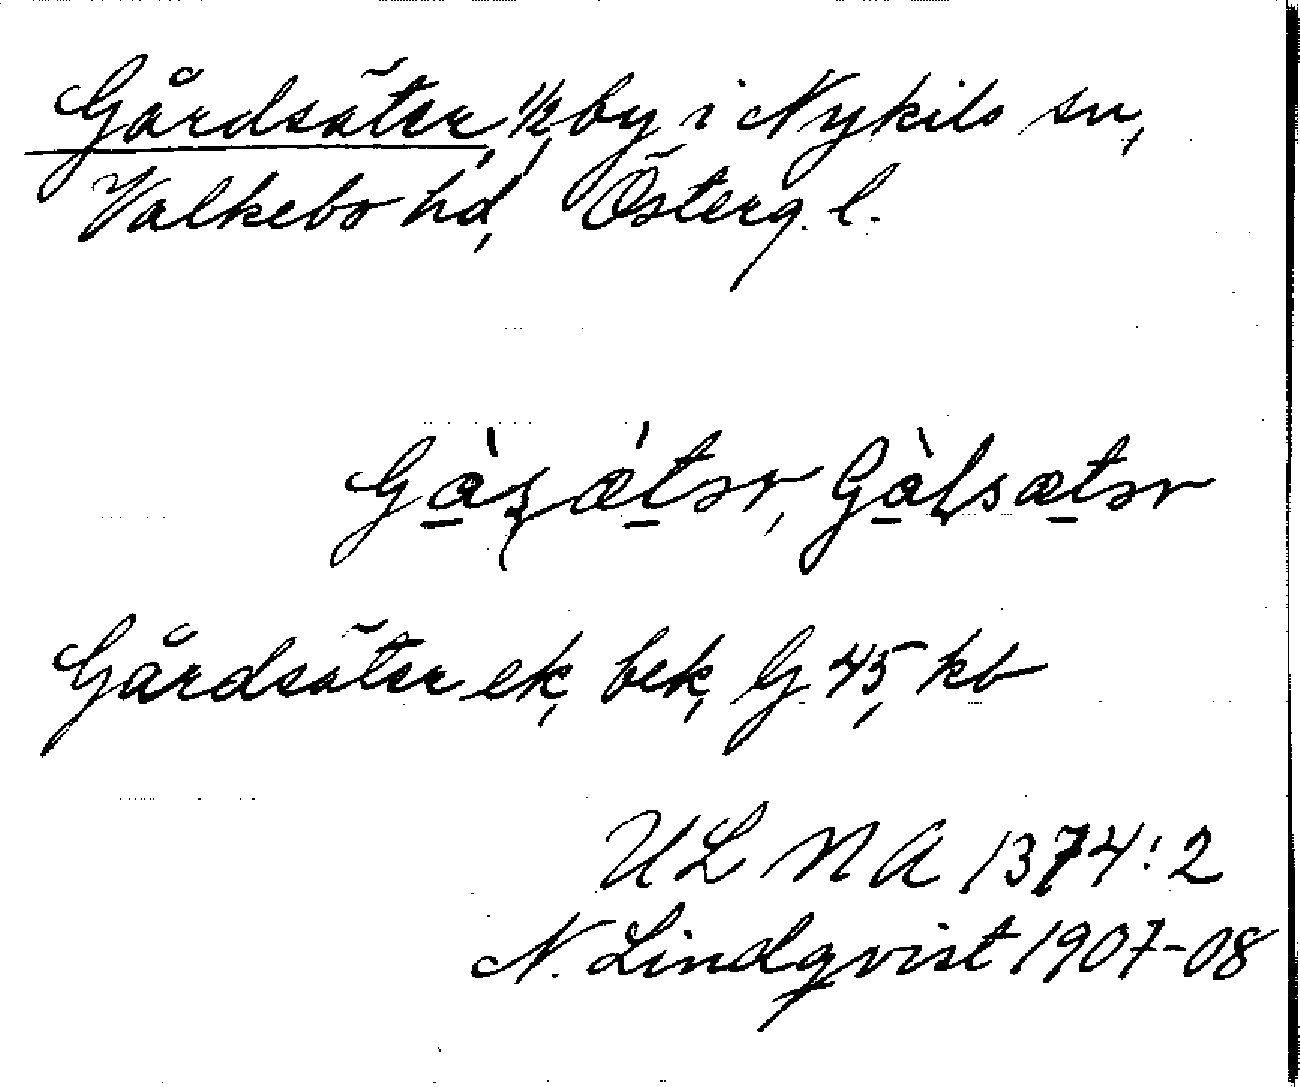 Gårdsäter, 1/2 by i Nykils sn,
Valkebo hd, Österg. l.
Gårdsäter ek, bek, G 45, kb
ULMA 1374:2
N. Lindqvist 1907-08